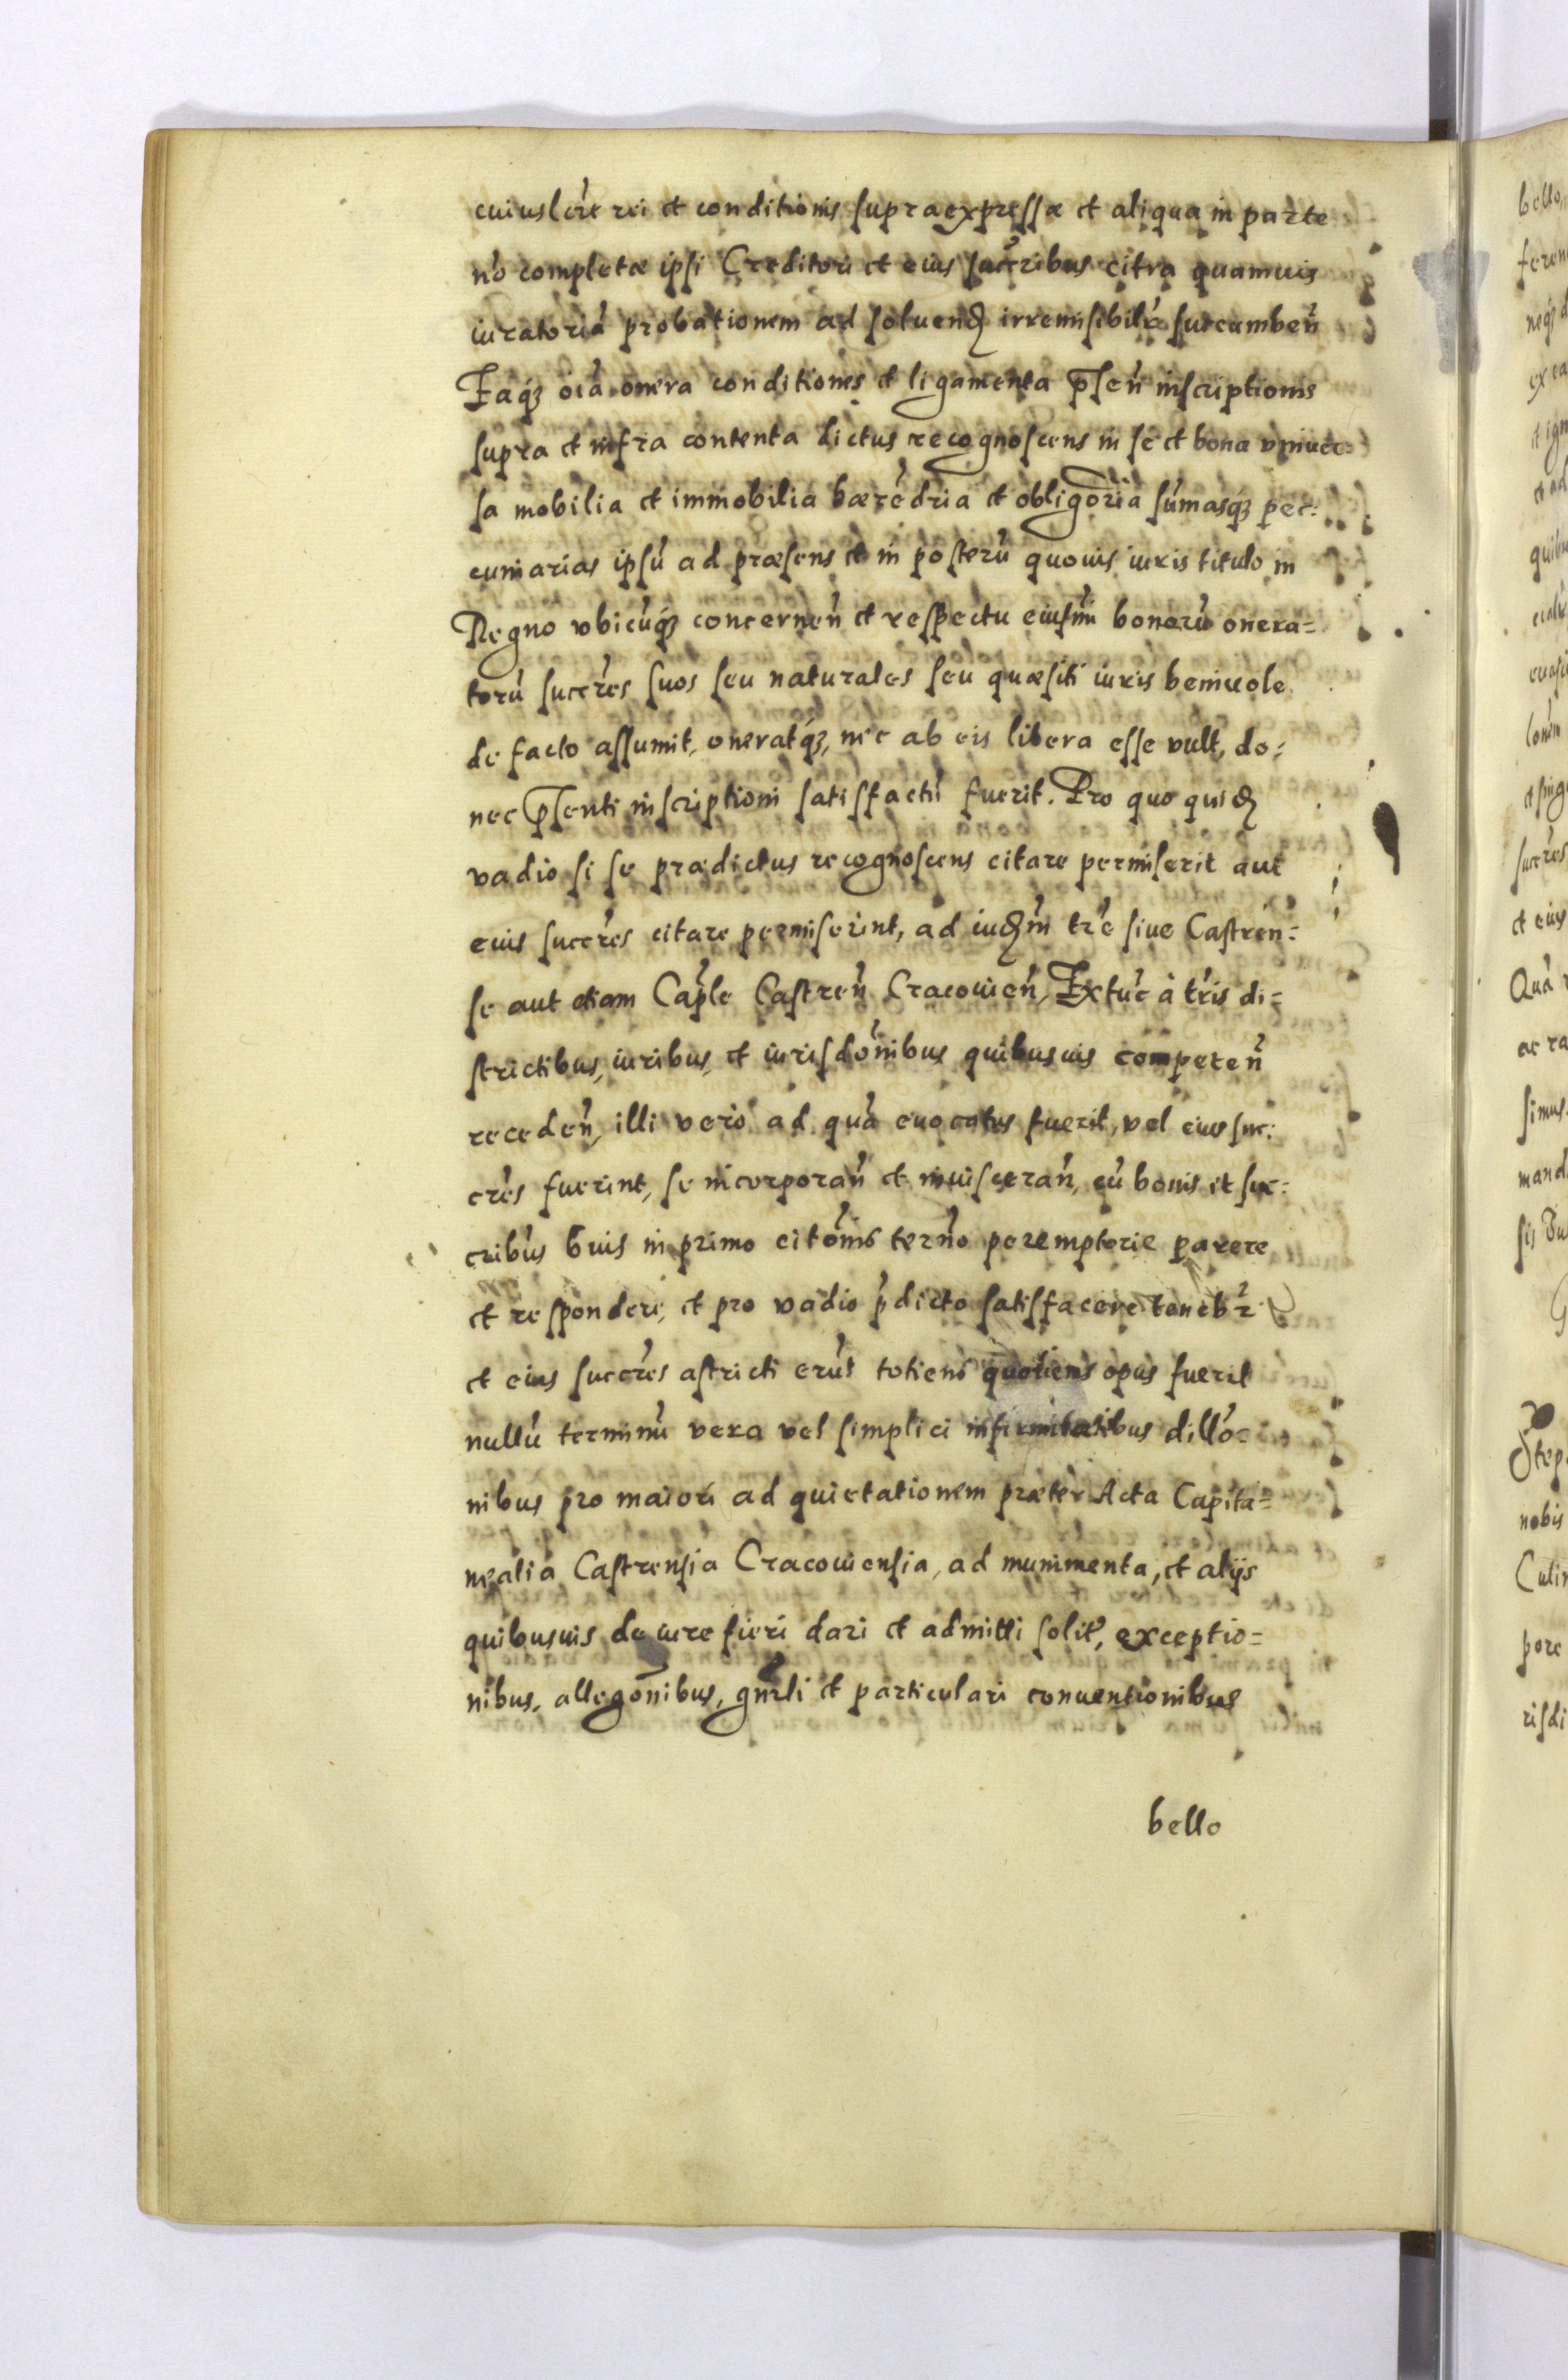 cuiuslibet rei et conditionis supraexpressæ et aliqua in parte
nō completæ ipsi Creditori et eius succribus citra quamuis
iuratoriā probationem ad soluend irremisibilr succumbeñ
Eaq; oīa onera conditiones et ligamenta pseñ inscriptionis
supra et infra contenta dictus recognoscens in se et bona vniuer=
sa mobilia et immobilia hæredria et obligoria sūmasq; pec:
cuniarias ipsū ad præsens et in posterū quouis iuris titulo in
Regno vbicūq; concerneñ et respectu eiusmi bonorū onera=
torū succres suos seu naturales seu quæsiti iuris beniuole
de facto assumit, oneratq;, nec ab eis libera esse vult, do=
nec psenti inscriptioni satisfactū fuerit. Pro quo quid
vadio si se prædictus recognoscens citare permiserit aut
eius succres citare permiserint, ad iudm tre siue Castren=
se aut etiam Caple Castreñ Cracouieñ, Extūc à tris di=
strictibus, iuribus, et iurisdonibus quibusuis competeñ
recedeñ, illi vero ad quā euocatus fuerit, vel eius suc:
cres fuerint, se incorporañ et inuisceräñ, cū bonis et suc=
cribus huis in primo citonis terno peremptorie parere
et respondere, et pro vadio pdicto satisfacere tenebr
et eius succres astricti erūt totiens quotiens opus fuerit
nullū terminū vera vel simplici infirmitatibus dillo=
nibus pro maiori ad quietationem præter Acta Capita=
nealia Castrensia Cracouiensia, ad munimenta, et alijs
quibusuis de iure fieri dari et admitti solit, exceptio=
nibus, allegonibus, gnrli et particulari conuentionibus
bello